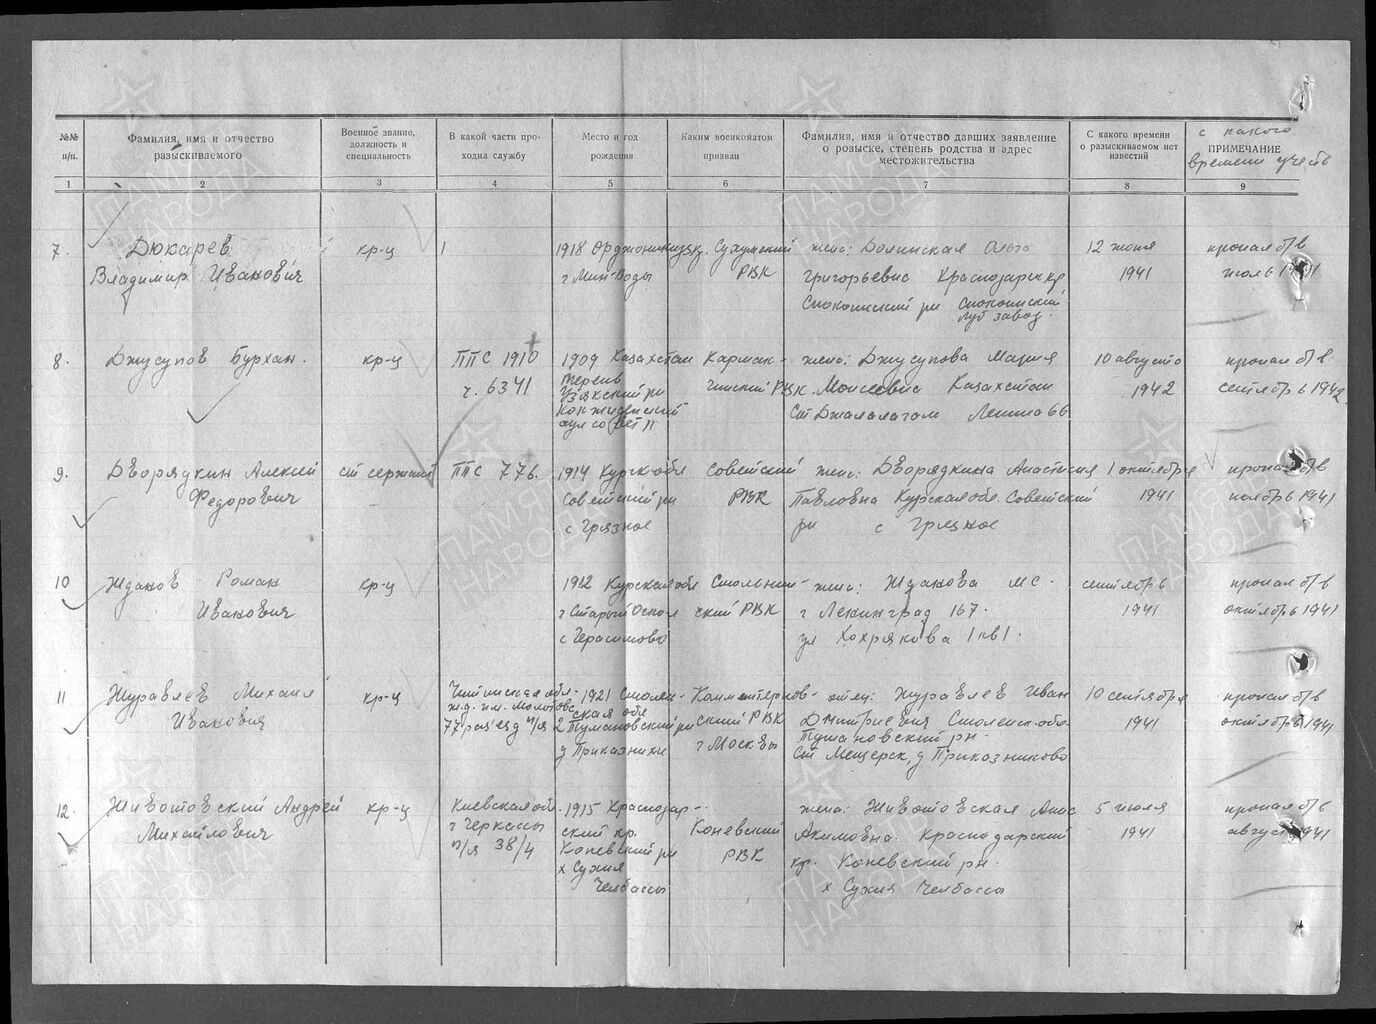 №№ п/п.
Фамилия, имя и отчество разыскиваемого
Военное звание, должность и специальность
В какой части проходила службу
Место и год рождения
Каким военкоматом призван
Фамилия, имя и отчество давших заявление о розыске, степень родства и адрес местожительства
С какого времени о разыскиваемом нет известий
с какого
ПРИМЕЧАНИЕ
времени учесть
1 2 3 4 5 6 7 8 9
7. Дюкарев кр-ц 1918 Орджоникидз. Сухумский жена: Долинская Ольга 12 июня пропал б/в
Владимир Иванович г Мин-Воды РВК Григорьевна Краснодарск кр 1941 июль 1941
Спокоинский рн Спокоинский
луб завод.
8. Джусупов Бурхан. кр-ц ППС 1910 1909 Казахстан Кармак- жена: Джусупова Мария 10 августа пропал б/в
ч. 6341 чинский РВК. Моисеевна Казахстан 1942 сентябрь 1942
аулсовет 11 ст Джалагаш Ленина 66
9. Дворядкин Алексей ст сержант ППС 776. 1914 Курск обл Советский жена: Дворядкина Анастасия 1 октября пропал б/в
Федорович Советский рн РВК Павловна Курская обл. Советский 1941 ноябрь 1941
с Грязное рн с Грязное
10 Жданов Роман кр-ц 1912 Курская обл Смольнин- жена: Жданова М С. сентябрь пропал б/в
Иванович г Старый Оскол ский РВК г Ленинград 167. 1941 октябрь 1941
с Герасимово ул Хохрякова 1 кв 1.
11 Журавлев Михаил кр-ц Читинская обл- 1921 Смолен- Коминтернов- отец: Журавлев Иван 10 сентября пропал б/в
ж.д. им. Молотова ская обл
Иванович 77 разъезд п/я 2 Тумановский рн ский РВК Дмитриевич Смоленск обл. 1941 октябрь 1941
д Приказники г Москвы Тумановский рн-
ст Мещерск, д Приказниково
12. Животовский Андрей кр-ц Киевская обл. 1915 Краснодар- жена: Животовская Анас 5 июля пропал б/в
Михайлович г Черкассы ский кр. Каневский Акимовна Краснодарский 1941 август 1941
п/я 38/4 Каневский рн РВК кр. Каневский рн-
х Сухия х Сухия Челбассы
Челбассы
ПАМЯТЬ НАРОДА
ПАМЯТЬ НАРОДА
ПАМЯТЬ НАРОДА
ПАМЯТЬ НАРОДА
ПАМЯТЬ НАРОДА
ПАМЯТЬ НАРОДА